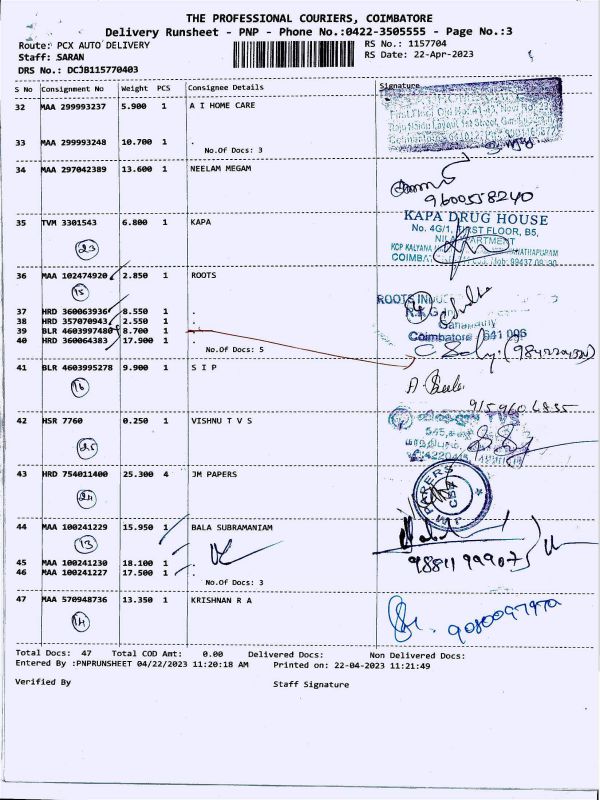 THE PROFESSIONAL COURIERS, COIMBATORE
Delivery Runsheet - PNP - Phone No.:0422-3505555 - Page No.:3
Route: PCX AUTO DELIVERY
RS No.: 1157704
Staff: SARAN
RS Date: 22-Apr-2023
DRS No.: DCJB115770403
S No Consignment No Weight PCS Consignee Details Signature
32 MAA 299993237 5.900 1 A I HOME CARE
33 MAA 299993248 10.700 1 .
No.Of Docs: 3
34 MAA 297042389 13.600 1 NEELAM MEGAM
9600558240
35 TVM 3301543 6.800 1 KAPA
KAPA DRUG HOUSE
No. 4G/1, FIRST FLOOR, B5,
23
36 MAA 102474920 2.850 1 ROOTS
15
37 HRD 360063936 8.550 1 .
38 HRD 357070943 2.550 1 .
39 BLR 4603997480 8.700 1 .
40 HRD 360064383 17.900 1 .
No.Of Docs: 5
Coimbatore 641 006
41 BLR 4603995278 9.900 1 S I P
16
42 HSR 7760 0.250 1 VISHNU T V S
25
43 HRD 754011400 25.300 4 JM PAPERS
24
44 MAA 100241229 15.950 1 BALA SUBRAMANIAM
13
45 MAA 100241230 18.100 1 .
46 MAA 100241227 17.500 1 .
No.Of Docs: 3
47 MAA 570948736 13.350 1 KRISHNAN R A
14
Total Docs: 47 Total COD Amt: 0.00 Delivered Docs: Non Delivered Docs:
Entered By :PNPRUNSHEET 04/22/2023 11:20:18 AM Printed on: 22-04-2023 11:21:49
Verified By Staff Signature